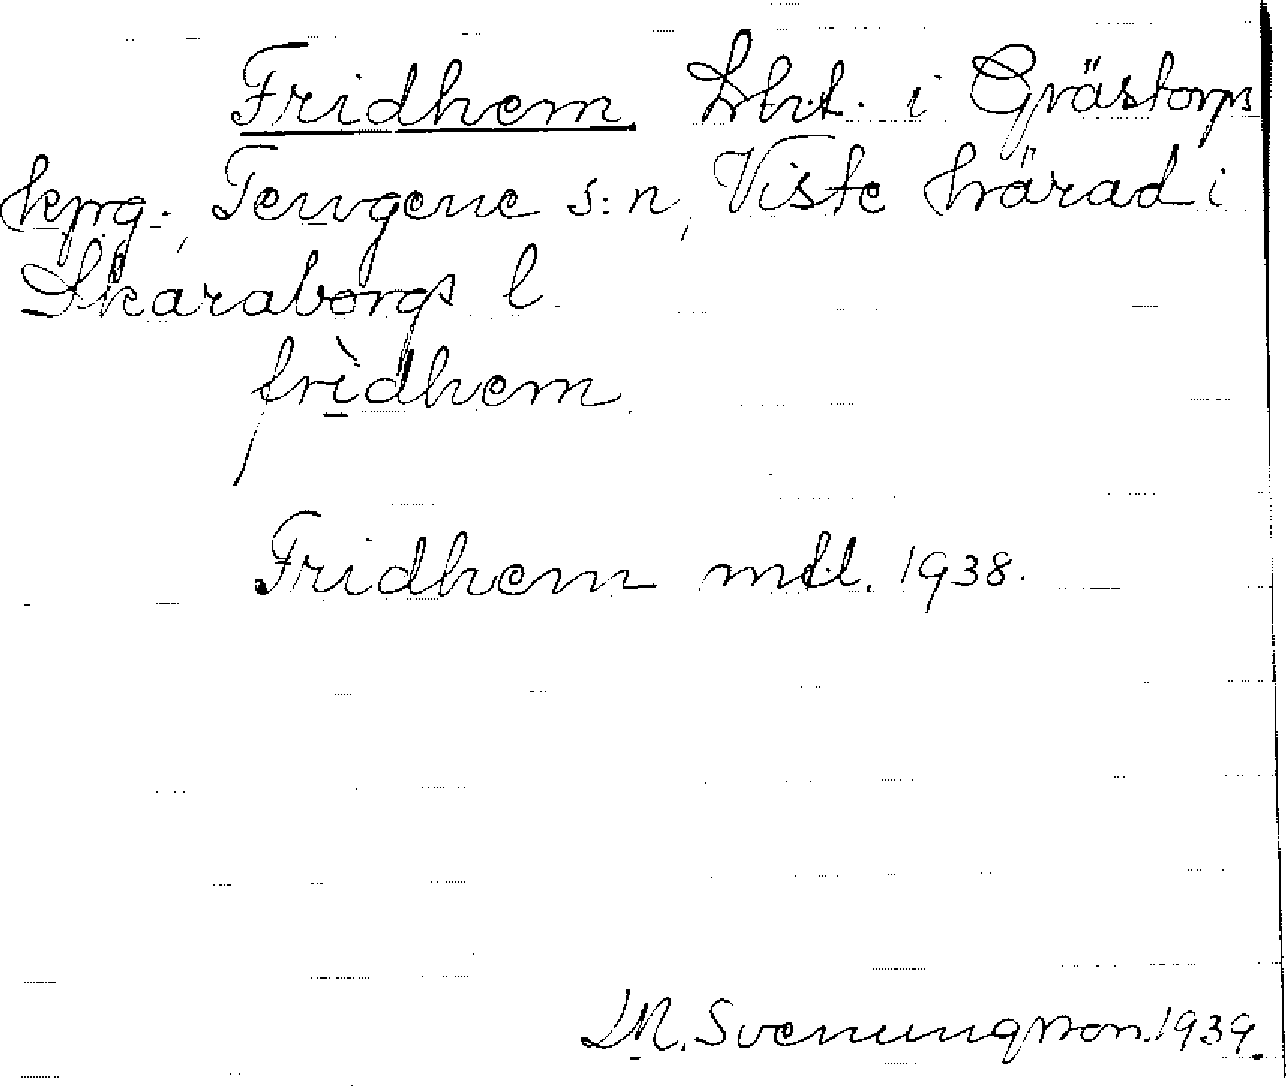 Fridhem. Lht. i Grästorps
kpg., Tengene s:n, Viste härad i
Skaraborgs l.
frìdhem.
Fridhem mtl. 1938.
M. Svenungsson. 1939.